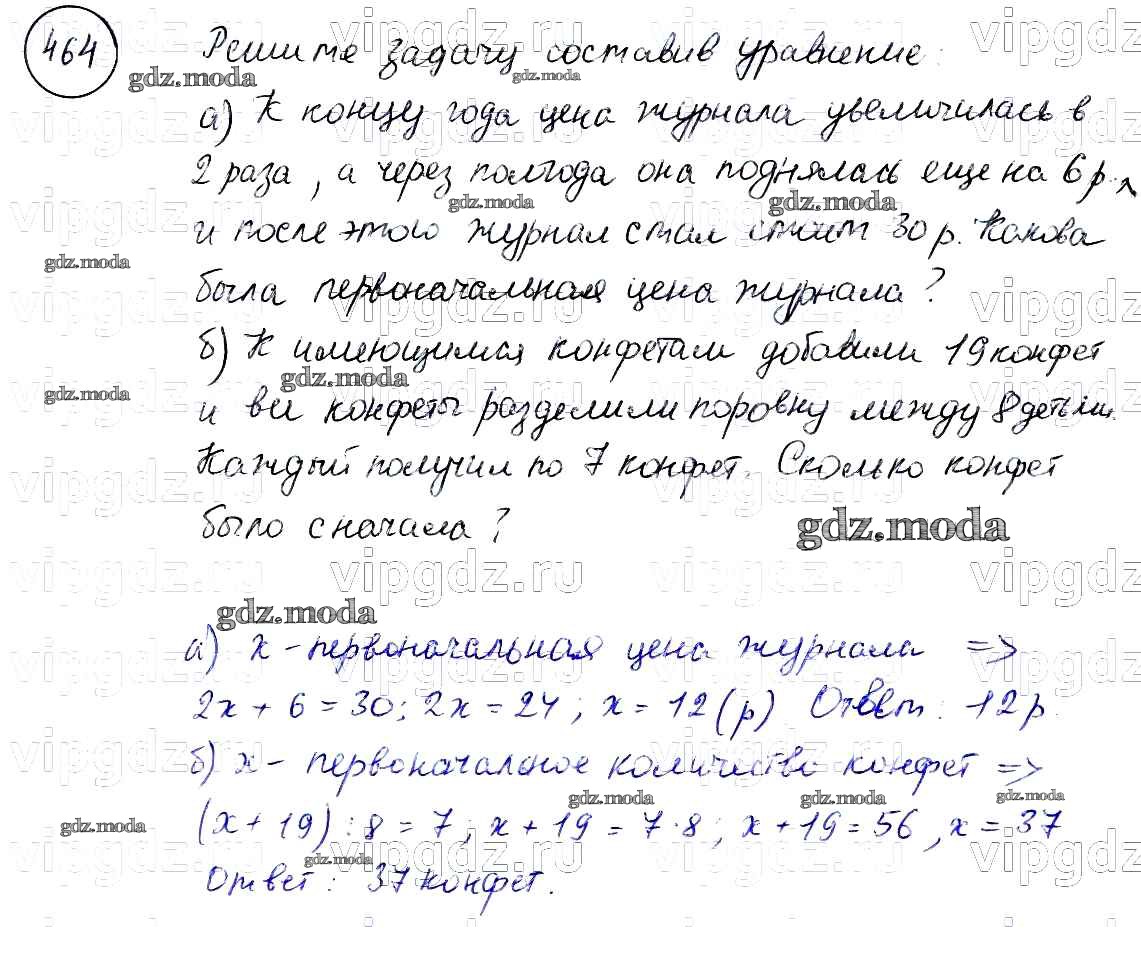 464 Решите задачу составив уравнение:
а) К концу года цена журнала увеличилась в
2 раза, а через полгода она поднялась еще на 6 р.
и после этого журнал стал стоит 30 р. Какова
была первоначальная цена журнала?
б) К имеющимся конфетам добавили 19 конфет
и все конфеты разделили поровну между 8 детьми.
Каждый получил по 7 конфет. Сколько конфет
было сначала?
gdz.moda
а) x - первоначальная цена журнала =>
2x + 6 = 30; 2x = 24; x = 12 (р) Ответ: 12 р.
б) x - первоначальное количество конфет =>
(x + 19) : 8 = 7; x + 19 = 7·8; x + 19 = 56, x = 37
Ответ: 37 конфет.
vipgdz.ru